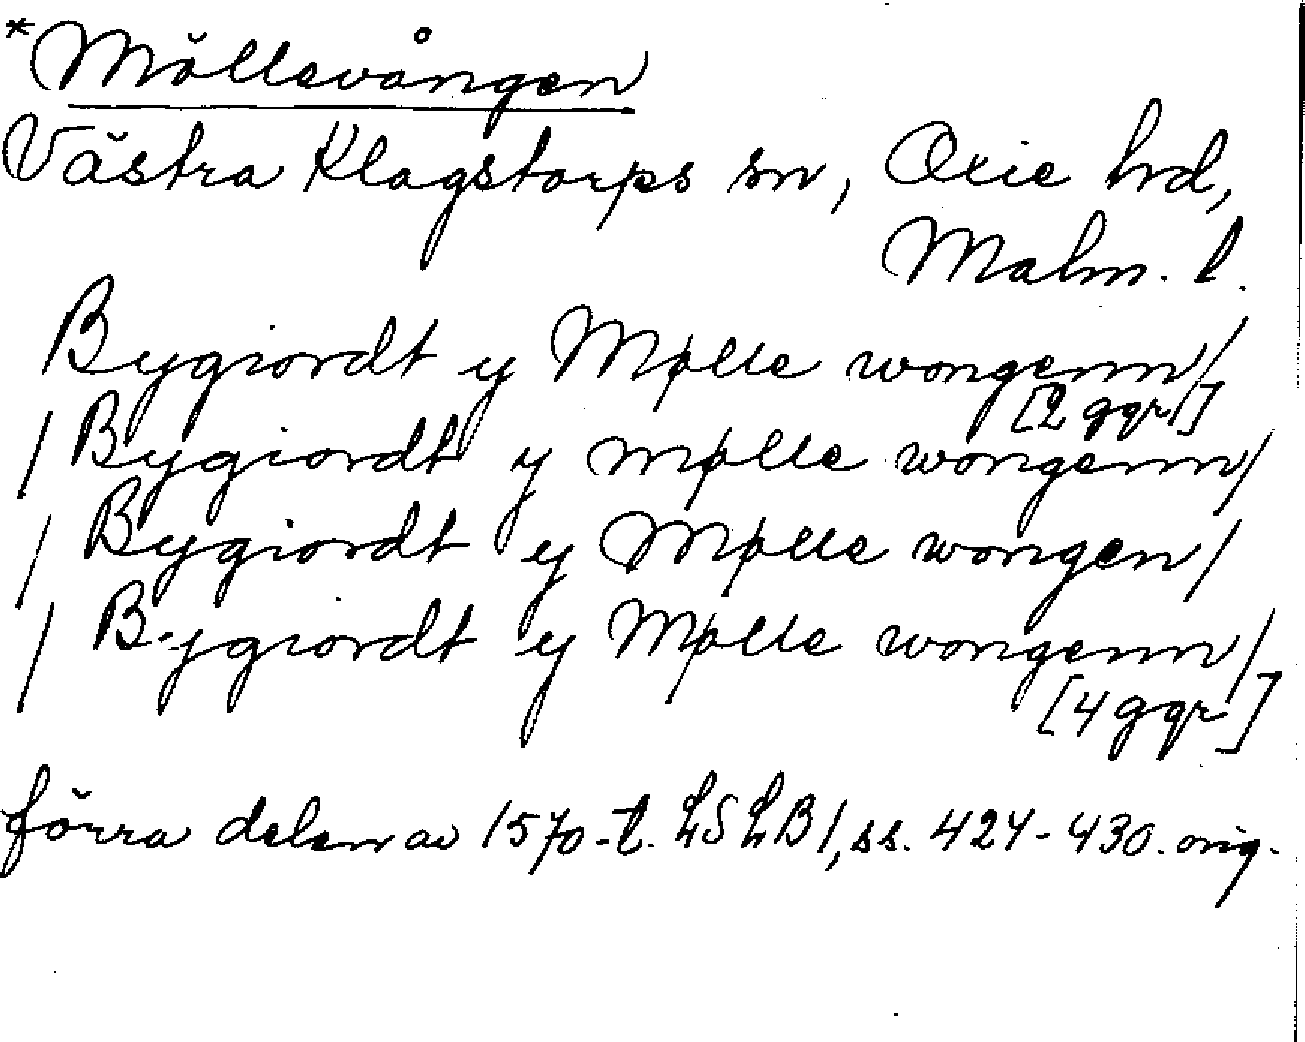 *Möllevången
Västra Klagstorps sn, Oxie hrd,
Malm. l.
Bygiordt y Mølle wongenn/
[2 ggr]
/Bygiordt y mølle wongenn/
/Bygiordt y Mølle wongen/
/Bygiordt y Mølle wongenn/
[4 ggr]
förra delen av 1570-t. LSLB1, ss. 424-430. orig.